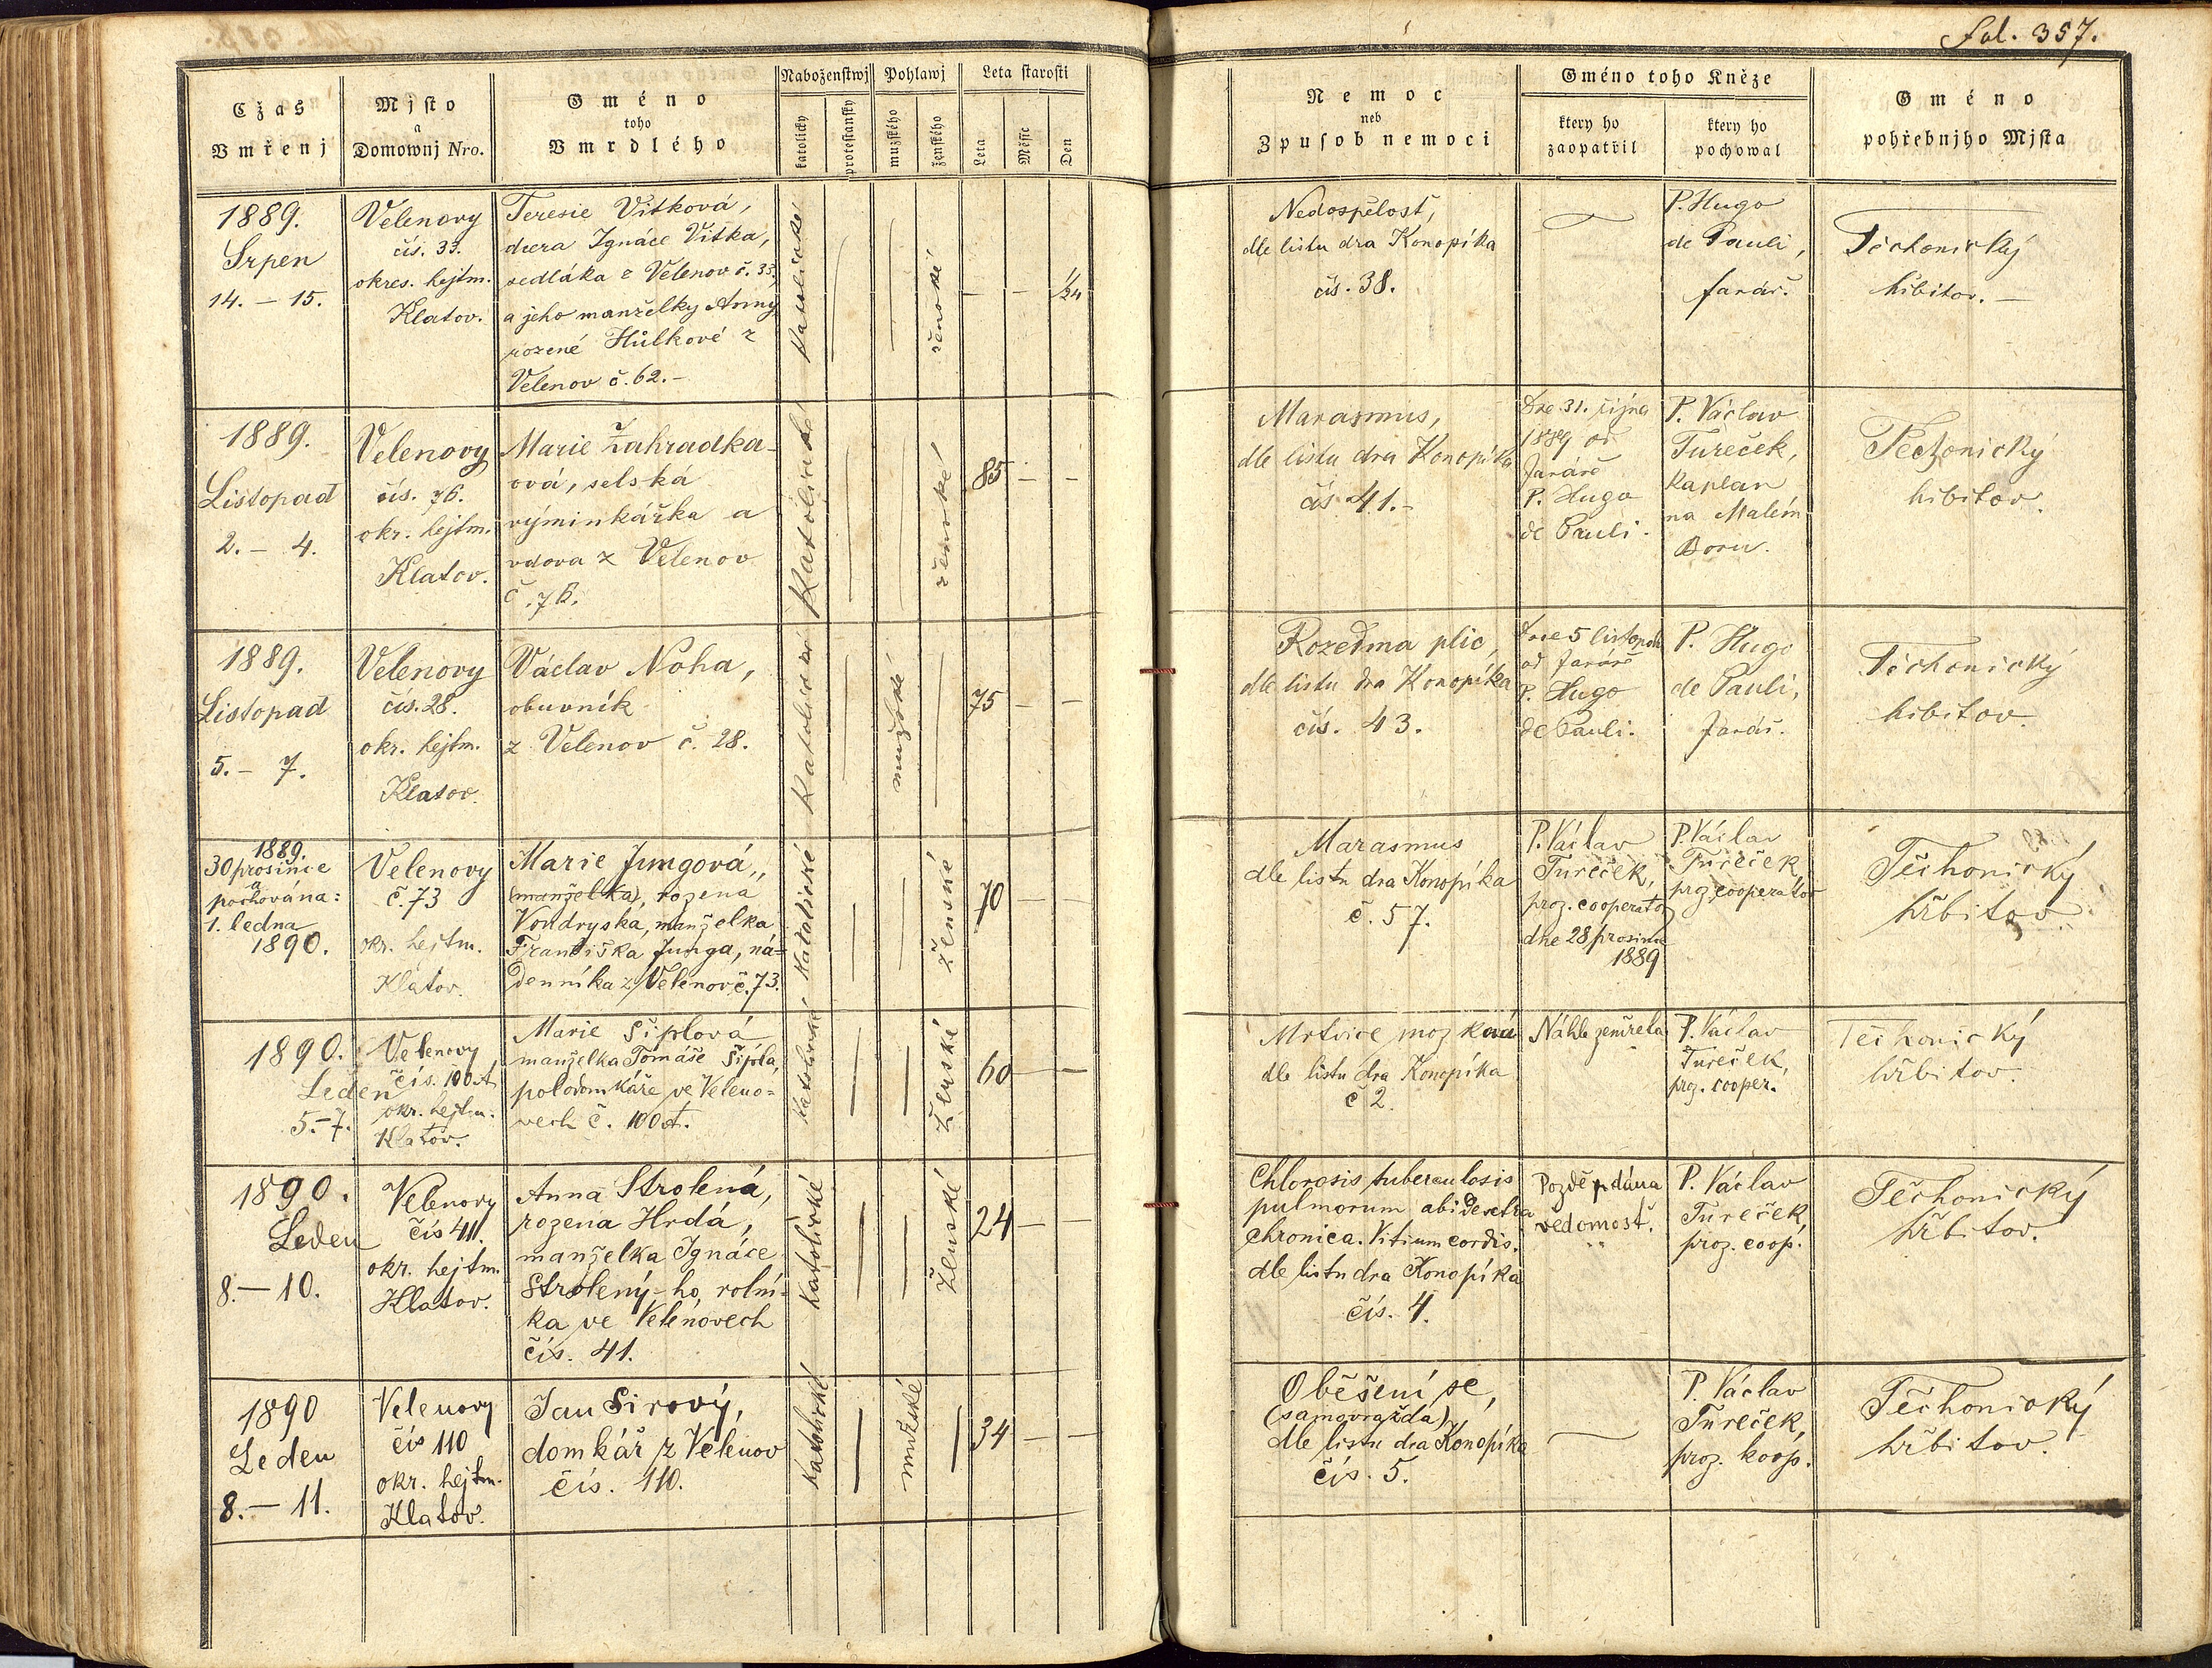 Fol. 357.
Cžas
Vmřenj
Mjsto
a
Domownj Nro.
Gméno
toho
Vmrdlého
Naboženstwj
katolicky
protestansky
Pohlawj
muzského
ženského
Leta starosti
Leta
Měsíc
Den
Nemoc
neb
Zpusob nemoci
Gméno toho Kněze
ktery ho
zaopatřil
ktery ho
pochowal
Gméno
pohřebnjho Mjsta
1889.
Srpen
14. – 15.
Velenovy
čís. 33.
okres. hejtm.
Klatov.
Teresie Vítková,
dcera Ignáce Vítka,
sedláka z Velenov č. 33,
a jeho manželky Anny
rozené Hůlkové z
Velenov č. 62. –
katolické
ženské
– – 1/24
Nedospělost,
dle listu dra Konopíka
čís. 38.
P. Hugo
de Pauli,
farář.
Těchonický
hřbitov. –
1889.
Listopad
2. – 4.
Velenovy
čís. 76.
okr. hejtm.
Klatov.
Marie Zahradka-
ová, selská
výminkářka a
vdova z Velenov
č. 76.
Katolické
ženské
85 – –
Marasmus,
dle listu dra Konopíka
čís. 41. –
Dne 31. října
1889 od
faráře
P. Hugo
de Pauli.
P. Václav
Tureček,
kaplan
na Malém
Boru.
Těchonický
hřbitov.
1889.
Listopad
5. – 7.
Velenovy
čís. 28.
okr. hejtm.
Klatov.
Václav Noha,
obuvník
z Velenov č. 28.
Katolické
mužské
75 – –
Rozedma plic,
dle listu dra Konopíka
čís. 43.
Dne 5 listopadu
od faráře
P. Hugo
de Pauli.
P. Hugo
de Pauli,
farář.
Těchonický
hřbitov
1889.
30 prosince
a
pochována:
1. ledna
1890.
Velenovy
č. 73
okr. hejtm.
Klatov.
Marie Jungová,
(manželka), rozená
Vondryska, manželka
Františka Junga, ná-
denníka z Velenov č. 73.
Katolické
ženské
70 – –
Marasmus
dle listu dra Konopíka
č. 57.
P. Václav
Tureček,
proz. cooperator
dne 28 prosince
1889
P. Václav
Tureček,
proz. cooperator
Těchonický
hřbitov.
1890.
Leden
5. – 7.
Velenovy
čís. 100 A
okr. hejtm.
Klatov.
Marie Šiplová
manželka Tomáše Šipla,
polodomkáře ve Veleno-
vech č. 100 A.
Katolické
Ženské
60 – –
Mrtvice mozková
dle listu dra Konopíka
č 2.
Náhle zemřela
P. Václav
Tureček,
proz. cooper.
Těchonický
hřbitov.
1890.
Leden
8. – 10.
Velenovy
čís 41.
okr. hejtm.
Klatov.
Anna Strolená,
rozená Hrdá,
manželka Ignáce
Strolený-ho, rolní-
ka ve Velenovech
čís. 41.
Katolické
Ženské
24 – –
Chlorosis, tuberculosis
pulmorum
chronica. Vitium cordis.
dle listu dra Konopíka
čís. 4.
Pozdě pdána
vědomost.
P. Václav
Tureček,
proz. coop.
Těchonický
hřbitov.
1890
Leden
8. – 11.
Velenovy
čís 110
okr. hejtm.
Klatov.
Jan Sirový,
domkář z Velenov
čís. 110.
Katolické
mužské
34 – –
Oběšení se,
(samovražda),
dle listu dra Konopíka
čís. 5.
P. Václav
Tureček,
proz. koop.
Těchonický
hřbitov.